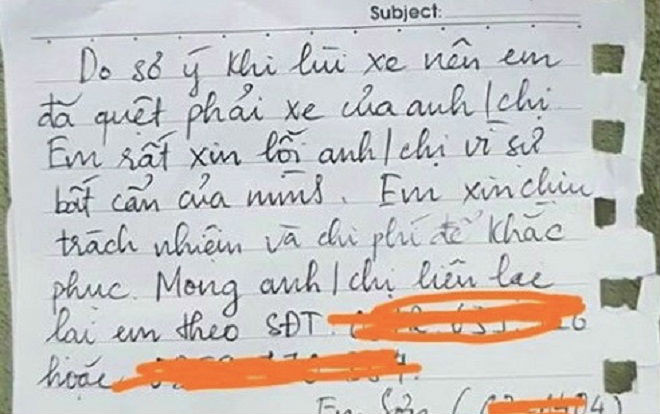 Subject:
Do sơ ý khi lùi xe nên em
đã quệt phải xe của anh/chị
Em rất xin lỗi anh/chị vì sự
bất cẩn của mình. Em xin chịu
trách nhiệm và chi phí để khắc
phục. Mong anh/chị liên lạc
lại em theo SĐT
hoặc
Em Sơn (